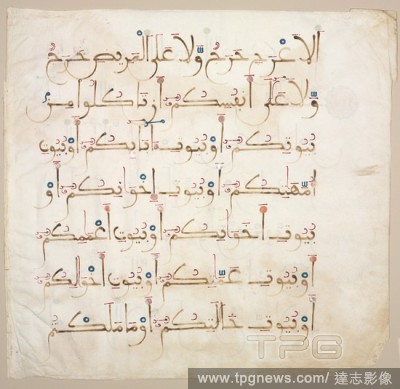 الاعرج حرج ولا على المريض حرج
ولا على أنفسكم أن تاكلوا من
بيوتكم أو بيوت ءابايكم أو بيوت
أمهتكم أو بيوت إخوانكم أو
بيوت أخواتكم أو بيوت أعممكم
أو بيوت عمتكم أو بيوت أخولكم
أو بيوت خلتكم أو ما ملكتم
TPG
www.tpgnews.com / 達志影像